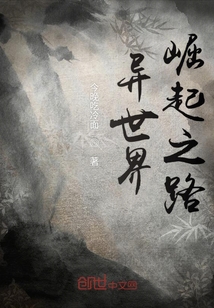 崛起之路
异世界
著
创世中文网